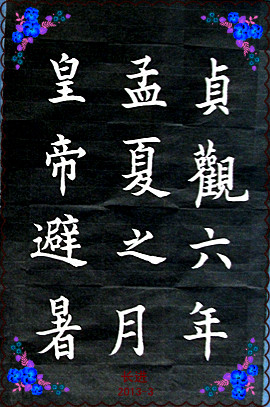 貞觀六年
孟夏之月
皇帝避暑
2013.3